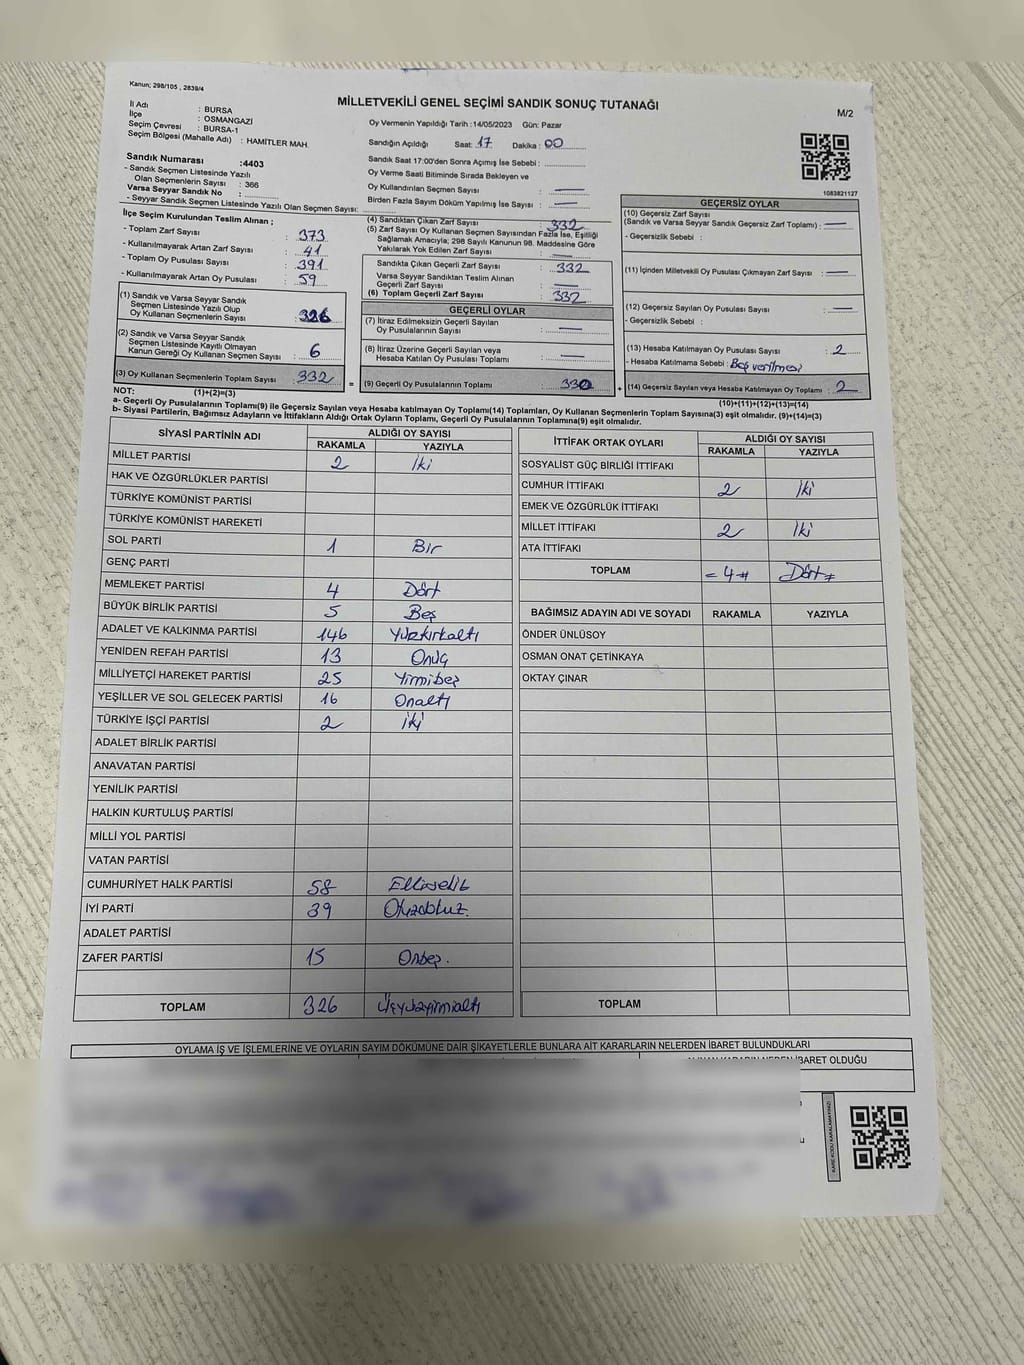 Kanun; 298/105 , 2839/4
MİLLETVEKİLİ GENEL SEÇİMİ SANDIK SONUÇ TUTANAĞI
M/2
İl Adı : BURSA
İlçe : OSMANGAZİ
Seçim Çevresi : BURSA-1
Seçim Bölgesi (Mahalle Adı) : HAMİTLER MAH.
Sandık Numarası :4403
- Sandık Seçmen Listesinde Yazılı
Olan Seçmenlerin Sayısı : 366
Varsa Seyyar Sandık No :
- Seyyar Sandık Seçmen Listesinde Yazılı Olan Seçmen Sayısı:
Oy Vermenin Yapıldığı Tarih :14/05/2023 Gün: Pazar
Sandığın Açıldığı Saat: 17 Dakika : 00
Sandık Saat 17:00'den Sonra Açımış İse Sebebi :
Oy Verme Saati Bitiminde Sırada Bekleyen ve
Oy Kullandırılan Seçmen Sayısı : —
Birden Fazla Sayım Döküm Yapılmış İse Sayısı : —
1083821127
İlçe Seçim Kurulundan Teslim Alınan ;
- Toplam Zarf Sayısı : 373
- Kullanılmayarak Artan Zarf Sayısı : 41
- Toplam Oy Pusulası Sayısı : 391
- Kullanılmayarak Artan Oy Pusulası : 59
(1) Sandık ve Varsa Seyyar Sandık
Seçmen Listesinde Yazılı Olup
Oy Kullanan Seçmenlerin Sayısı : 326
(2) Sandık ve Varsa Seyyar Sandık
Seçmen Listesinde Kayıtlı Olmayan
Kanun Gereği Oy Kullanan Seçmen Sayısı : 6
(3) Oy Kullanan Seçmenlerin Toplam Sayısı : 332
(1)+(2)=(3)
(4) Sandıktan Çıkan Zarf Sayısı : 332
(5) Zarf Sayısı Oy Kullanan Seçmen Sayısından Fazla İse, Eşitliği
Sağlamak Amacıyla; 298 Sayılı Kanunun 98. Maddesine Göre
Yakılarak Yok Edilen Zarf Sayısı : —
Sandıkta Çıkan Geçerli Zarf Sayısı : 332
Varsa Seyyar Sandıktan Teslim Alınan
Geçerli Zarf Sayısı : —
(6) Toplam Geçerli Zarf Sayısı : 332
GEÇERLİ OYLAR
(7) İtiraz Edilmeksizin Geçerli Sayılan
Oy Pusulalarının Sayısı : —
(8) İtiraz Üzerine Geçerli Sayılan veya
Hesaba Katılan Oy Pusulası Toplamı : —
= (9) Geçerli Oy Pusulalarının Toplamı : 330 +
GEÇERSİZ OYLAR
(10) Geçersiz Zarf Sayısı
(Sandık ve Varsa Seyyar Sandık Geçersiz Zarf Toplamı) : —
- Geçersizlik Sebebi :
(11) İçinden Milletvekili Oy Pusulası Çıkmayan Zarf Sayısı : —
(12) Geçersiz Sayılan Oy Pusulası Sayısı : —
- Geçersizlik Sebebi :
(13) Hesaba Katılmayan Oy Pusulası Sayısı : 2
- Hesaba Katılmama Sebebi :
(14) Geçersiz Sayılan veya Hesaba Katılmayan Oy Toplamı : 2
(10)+(11)+(12)+(13)=(14)
NOT:
a- Geçerli Oy Pusulalarının Toplamı(9) ile Geçersiz Sayılan veya Hesaba katılmayan Oy Toplamı(14) Toplamları, Oy Kullanan Seçmenlerin Toplam Sayısına(3) eşit olmalıdır. (9)+(14)=(3)
b- Siyasi Partilerin, Bağımsız Adayların ve İttifakların Aldığı Ortak Oyların Toplamı, Geçerli Oy Pusulalarının Toplamına(9) eşit olmalıdır.
SİYASİ PARTİNİN ADI ALDIĞI OY SAYISI
RAKAMLA YAZIYLA
MİLLET PARTİSİ 2 İki
HAK VE ÖZGÜRLÜKLER PARTİSİ
TÜRKİYE KOMÜNİST PARTİSİ
TÜRKİYE KOMÜNİST HAREKETİ
SOL PARTİ 1 Bir
GENÇ PARTİ
MEMLEKET PARTİSİ 4 Dört
BÜYÜK BİRLİK PARTİSİ 5 Beş
ADALET VE KALKINMA PARTİSİ 146 Yüzkırkaltı
YENİDEN REFAH PARTİSİ 13 Onüç
MİLLİYETÇİ HAREKET PARTİSİ 25 Yirmibeş
YEŞİLLER VE SOL GELECEK PARTİSİ 16 Onaltı
TÜRKİYE İŞÇİ PARTİSİ 2 İki
ADALET BİRLİK PARTİSİ
ANAVATAN PARTİSİ
YENİLİK PARTİSİ
HALKIN KURTULUŞ PARTİSİ
MİLLİ YOL PARTİSİ
VATAN PARTİSİ
CUMHURİYET HALK PARTİSİ 58 Ellisekiz
İYİ PARTİ 39 Otuzdokuz.
ADALET PARTİSİ
ZAFER PARTİSİ 15 Onbeş.
TOPLAM 326 Üçyüzyirmialtı
İTTİFAK ORTAK OYLARI ALDIĞI OY SAYISI
RAKAMLA YAZIYLA
SOSYALİST GÜÇ BİRLİĞİ İTTİFAKI
CUMHUR İTTİFAKI 2 İki
EMEK VE ÖZGÜRLÜK İTTİFAKI
MİLLET İTTİFAKI 2 İki
ATA İTTİFAKI
TOPLAM =4# Dört#
BAĞIMSIZ ADAYIN ADI VE SOYADI RAKAMLA YAZIYLA
ÖNDER ÜNLÜSOY
OSMAN ONAT ÇETİNKAYA
OKTAY ÇINAR
TOPLAM
OYLAMA İŞ VE İŞLEMLERİNE VE OYLARIN SAYIM DÖKÜMÜNE DAİR ŞİKAYETLERLE BUNLARA AİT KARARLARIN NELERDEN İBARET BULUNDUKLARI
ALINAN KARARIN NEDEN İBARET OLDUĞU